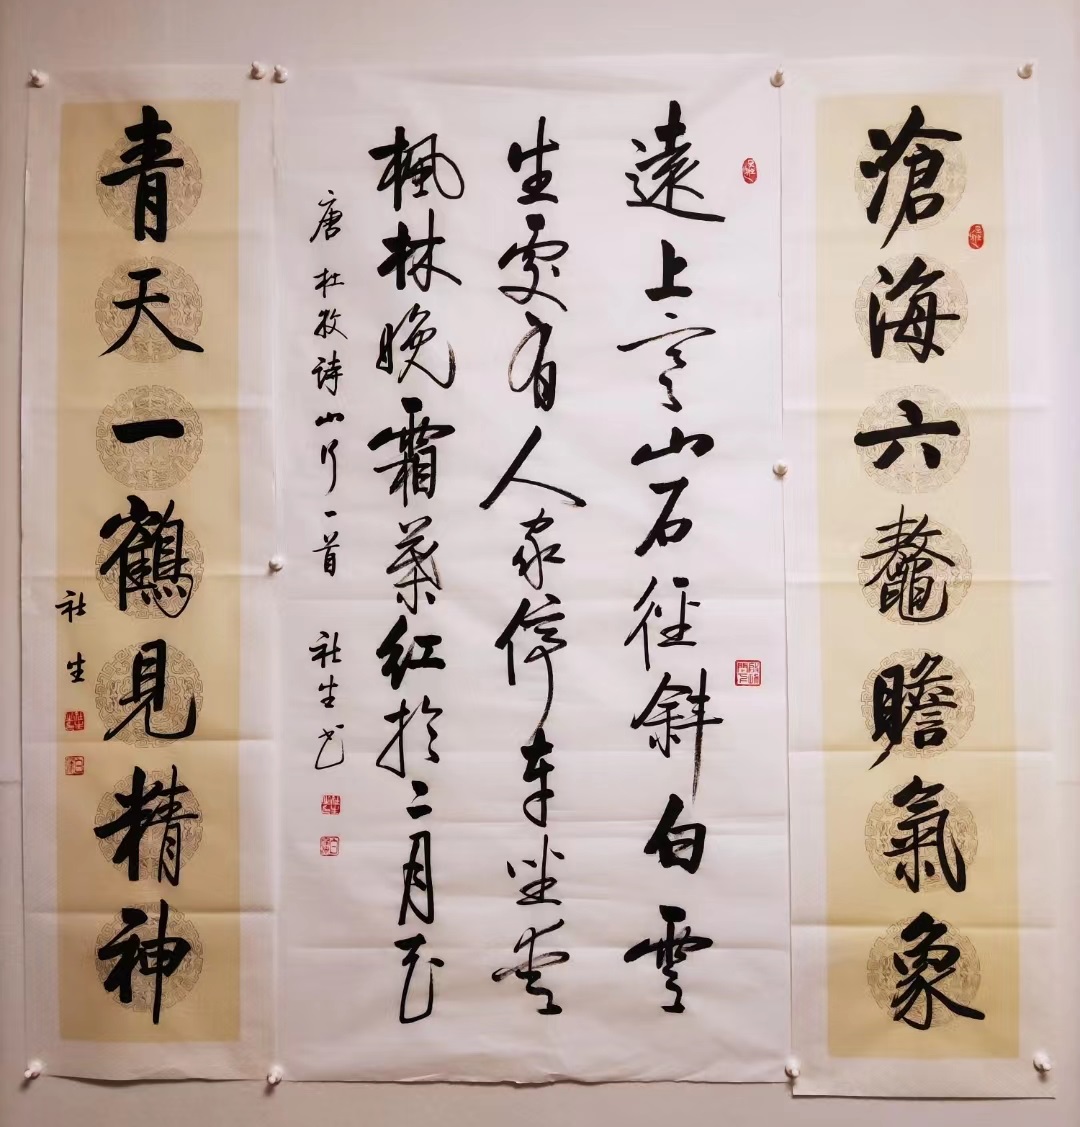 滄海六鼇瞻氣象
遠上寒山石徑斜白雲
生處有人家停車坐愛
楓林晚霜葉紅於二月花
唐 杜牧诗山行一首 社生书
青天一鶴見精神
社生